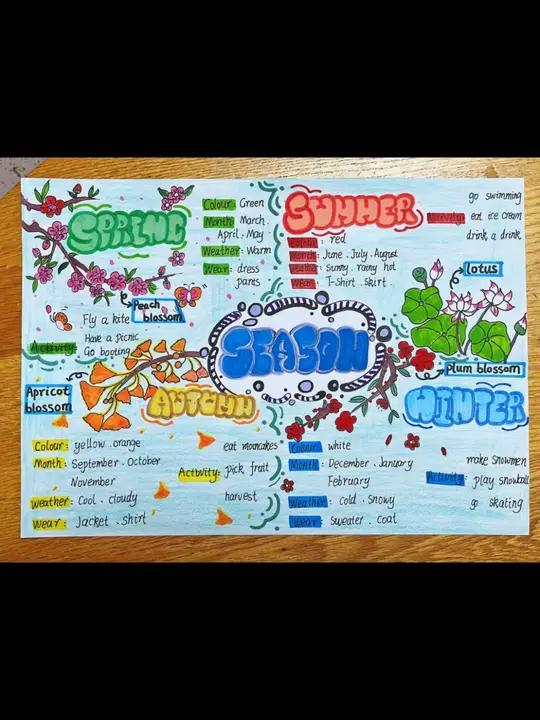 SPRING
Colour: Green
Month: March.
April. May
Weather: Warm
Wear: dress
pants
Peach
blossom
Fly a kite
Have a picnic
Activity: Go booting
SUMMER
Colour: red
Month: June. July. August
Weather: Sunny. rainy hot
Wear: T-shirt. skirt.
go swimming
Activity: eat ice cream
drink a drink
lotus
SEASON
Apricot
blossom
AUTUMN
Colour: yellow. orange
Month: September. October
November
Weather: Cool. cloudy
Wear: Jacket. shirt
eat mooncakes
Activity: pick fruit
harvest
Plum blossom
WINTER
Colour: white
Month: December. January
February
Weather: cold. snowy
Wear: sweater. coat
make snowmen
Activity: play snowball
go skating